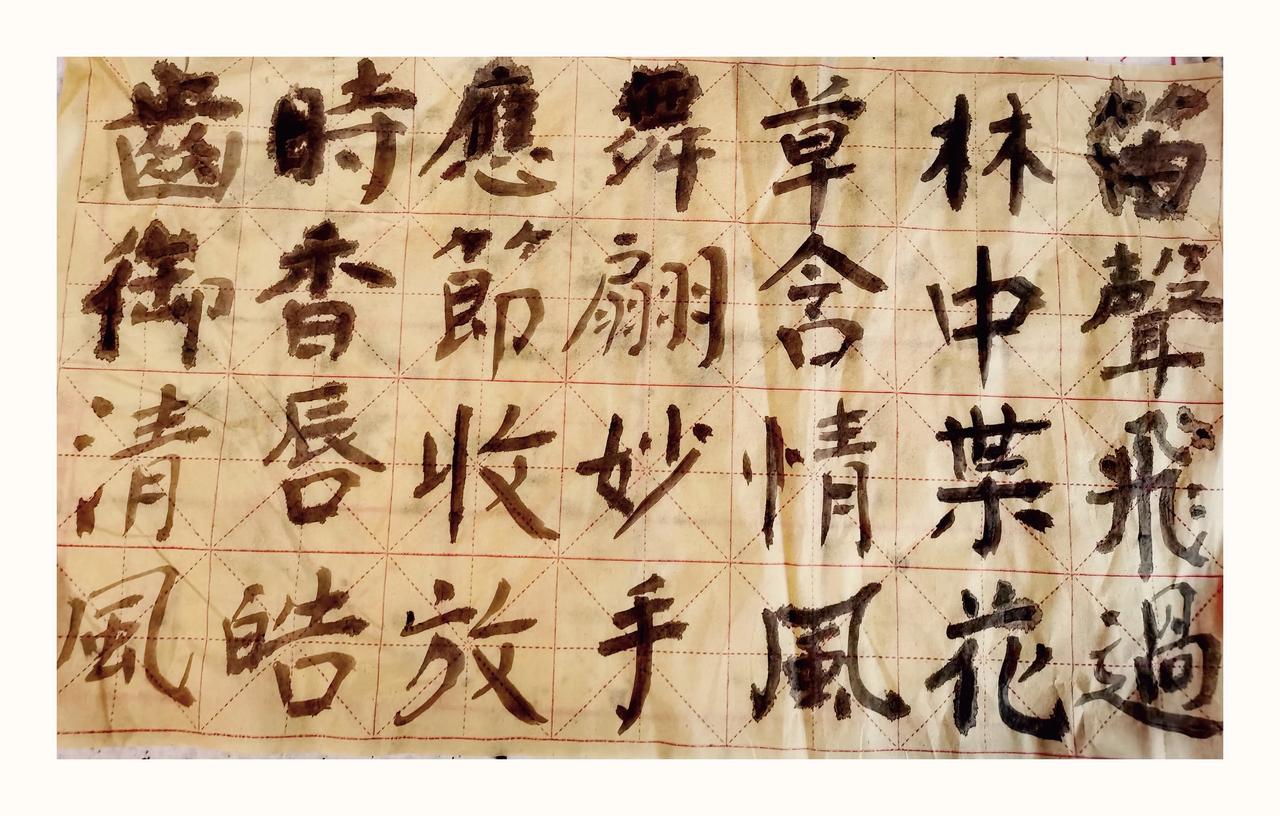 笛聲飛過
林中葉花
草含情風
舞翩妙手
應節收放
時香唇皓
齒御清風